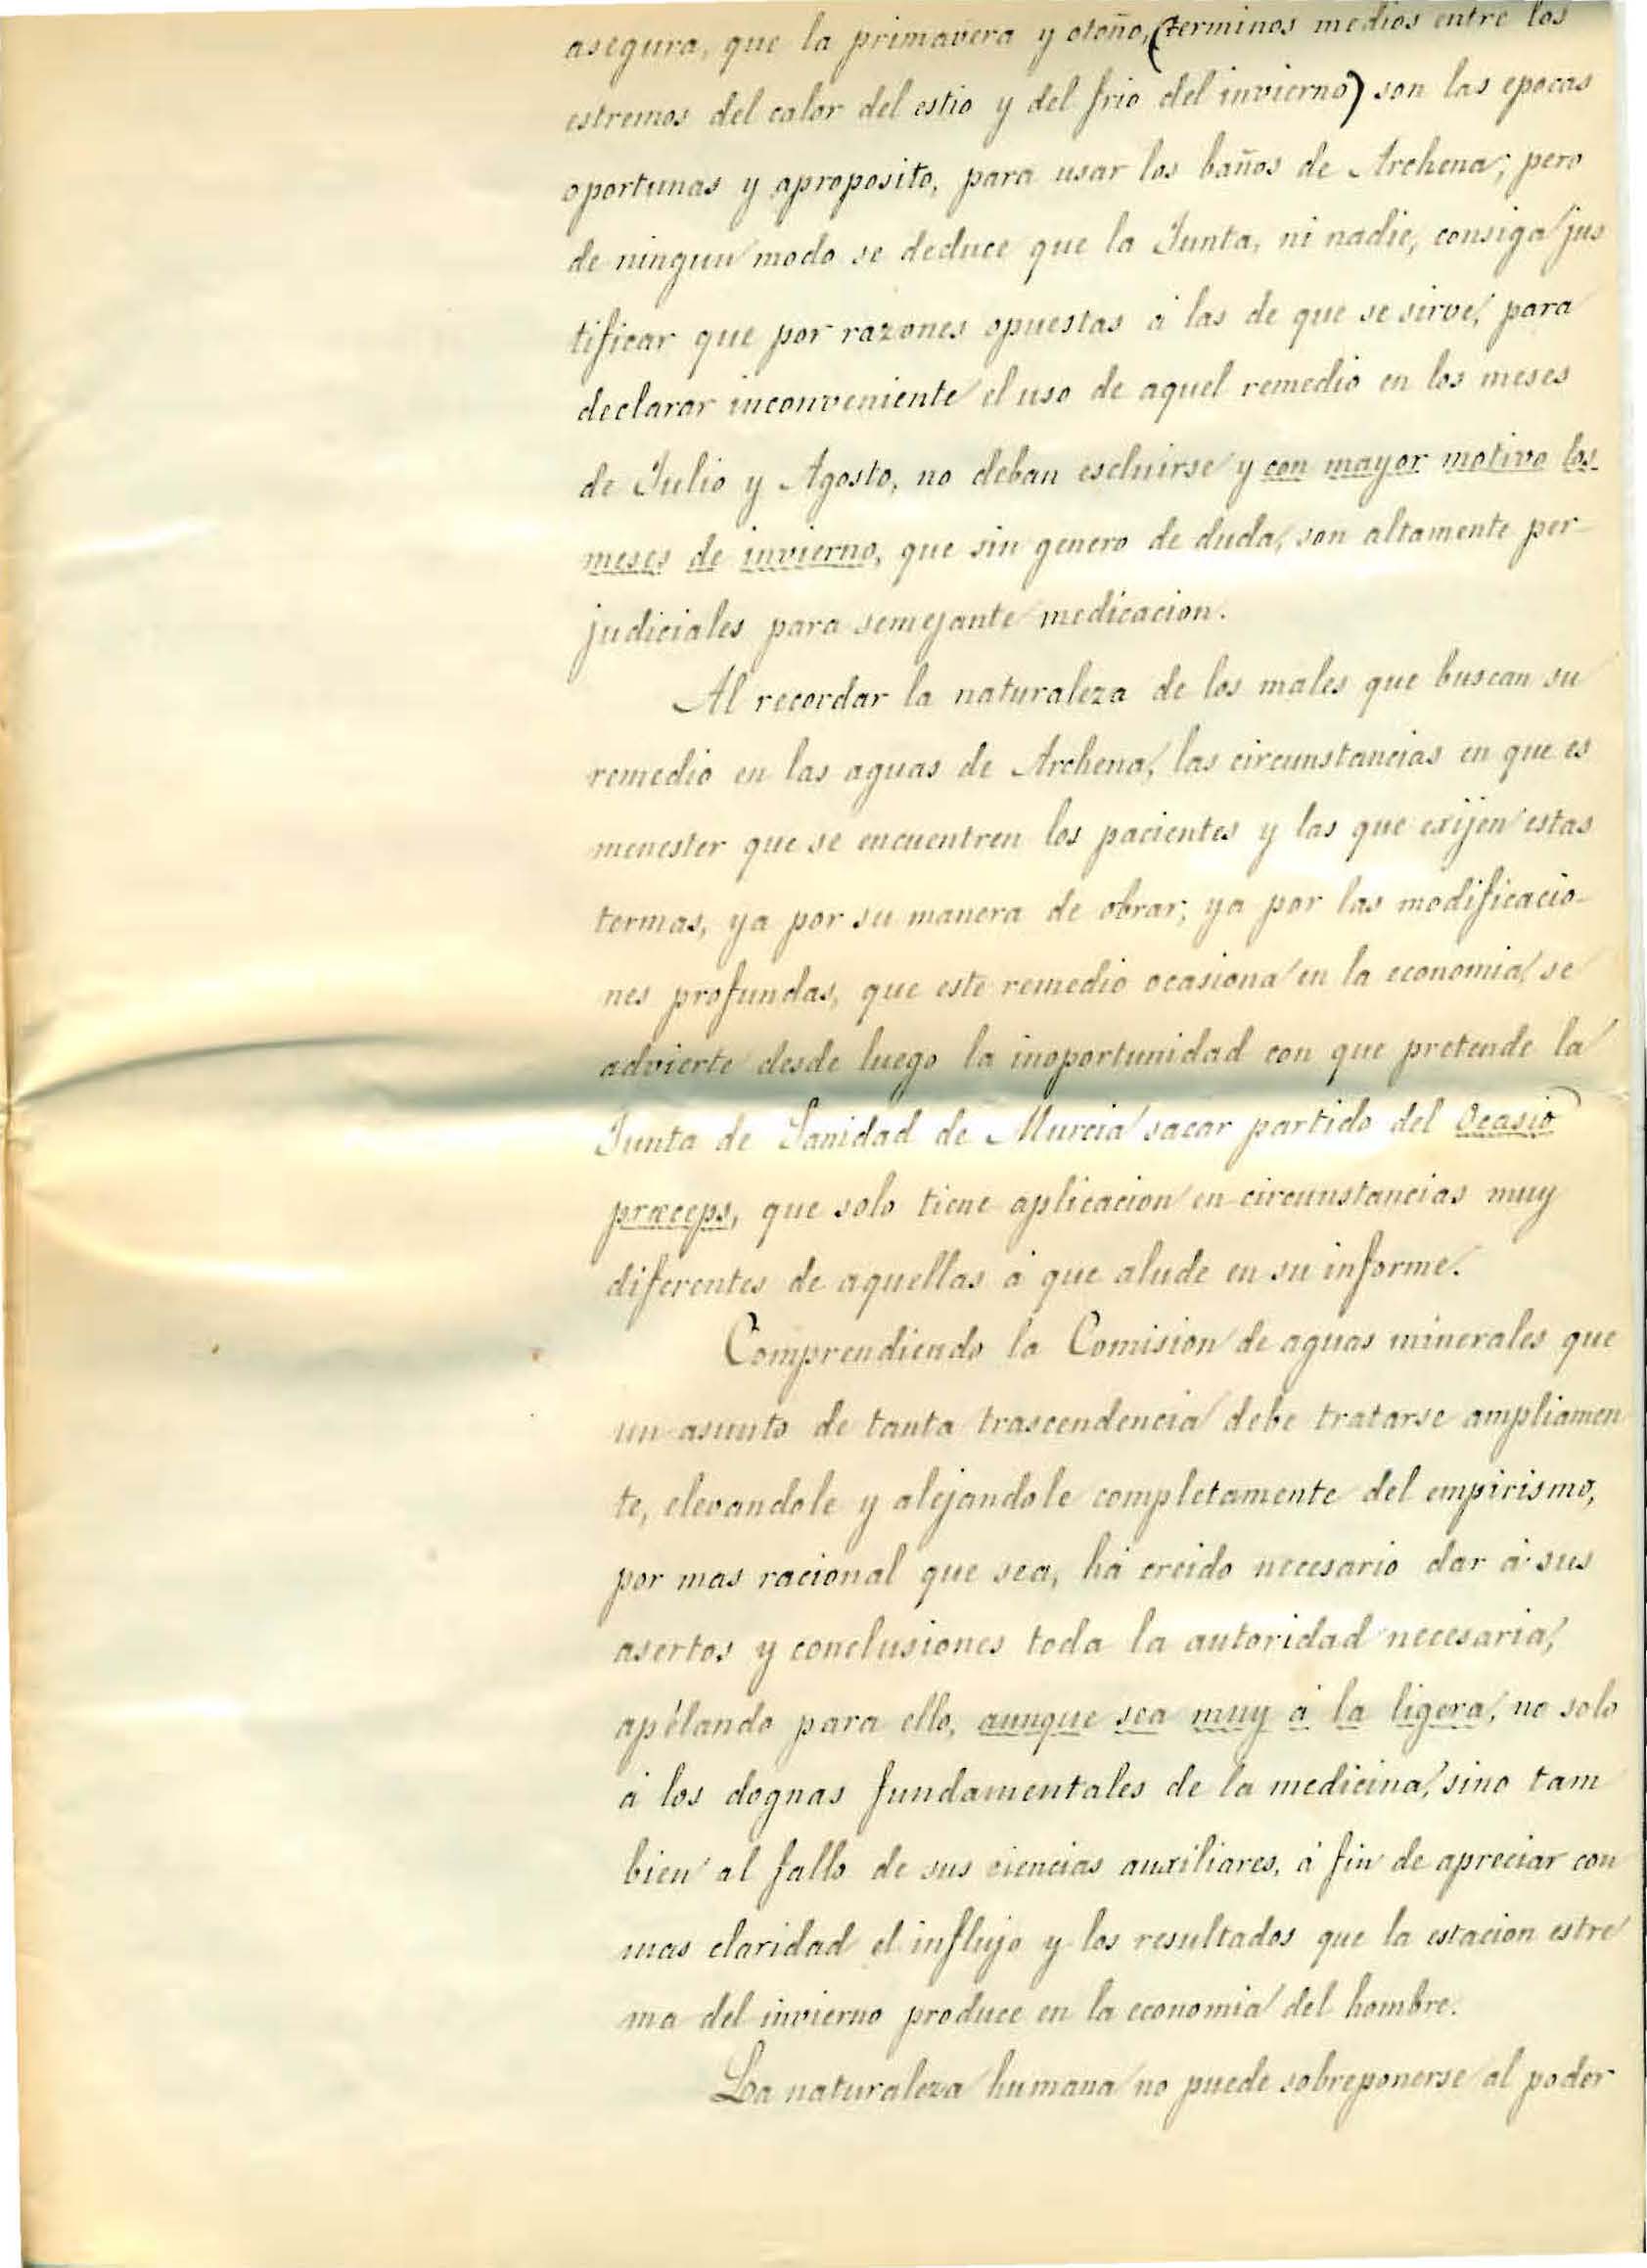 asegura, que la primavera y otoño, (terminos medios entre los
estremos del calor del estio y del frio del invierno) son las epocas
oportunas y aproposito, para usar los baños de Archena; pero
de ningun modo se deduce que la Junta, ni nadie, consiga jus
tificar que por razones opuestas á las de que se sirve, para
declarar inconveniente el uso de aquel remedio en los meses
de Julio y Agosto, no deban escluirse y con mayor motivo los
meses de invierno, que sin genero de duda, son altamente per-
judiciales para semejante medicacion.
Al recordar la naturaleza de los males que buscan su
remedio en las aguas de Archena, las circunstancias en que es
menester que se encuentren los pacientes y las que exijen estas
termas, ya por su manera de obrar, ya por las modificacio-
nes profundas, que este remedio ocasiona en la economia, se
advierte desde luego la inoportunidad con que pretende la
Junta de Sanidad de Murcia sacar partido del Ocasio
præceps, que solo tiene aplicacion en circunstancias muy
diferentes de aquellas á que alude en su informe.
Comprendiendo la Comision de aguas minerales que
un asunto de tanta trascendencia debe tratarse ampliamen
te, elevandole y alejandole completamente del empirismo,
por mas racional que sea, há creido necesario dar á sus
asertos y conclusiones toda la autoridad necesaria,
apélando para ello, aunque sea muy á la ligera, no solo
á los dognas fundamentales de la medicina, sino tam
bien al fallo de sus ciencias auxiliares, á fin de apreciar con
mas claridad el influjo y los resultados que la estacion estre
ma del invierno produce en la economia del hombre.
La naturaleza humana no puede sobreponerse al poder